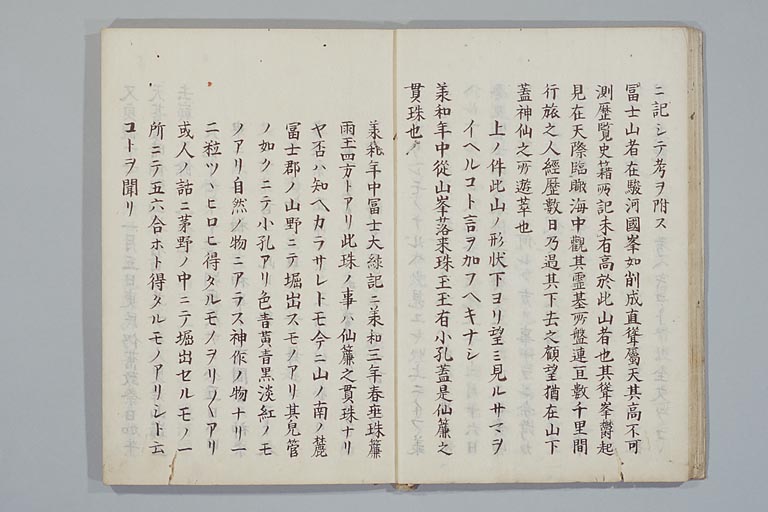 ニ記シテ考ヲ附ス
冨士山者在駿河國峯如削成直聳屬天其高不可
測歴覧史籍所記未有高於此山者也其聳峯欝起
見在天際臨瞰海中觀其霊基所盤連亘數千里間
行旅之人經歴數日乃過其下去之顧望猶在山下
蓋神仙之所遊萃也
上ノ件此山ノ形状下ヨリ望ミ見ルサマヲ
イヘルコト言ヲ加フヘキナシ
義和年中從山峯落来珠玉玉有小孔蓋是仙簾之
貫珠也
義和年中冨士大縁記ニ義和三年春垂珠簾
雨玉四方トアリ此珠ノ事ハ仙簾之貫珠ナリ
ヤ否ハ知ヘカラサレトモ今ニ山ノ南ノ麓
冨士郡ノ山野ニテ堀出スモノアリ其皃管
ノ如クニテ小孔アリ色青黄青黒淡紅ノモ
ノアリ自然ノ物ニアラス神作ノ物ナリ一
二粒ツヽヒロヒ得タルモノヲリ〱アリ
或人ノ話ニ茅野ノ中ニテ堀出セルモノ一
所ニテ五六合ホト得タルモノアリシト云
コトヲ聞リ